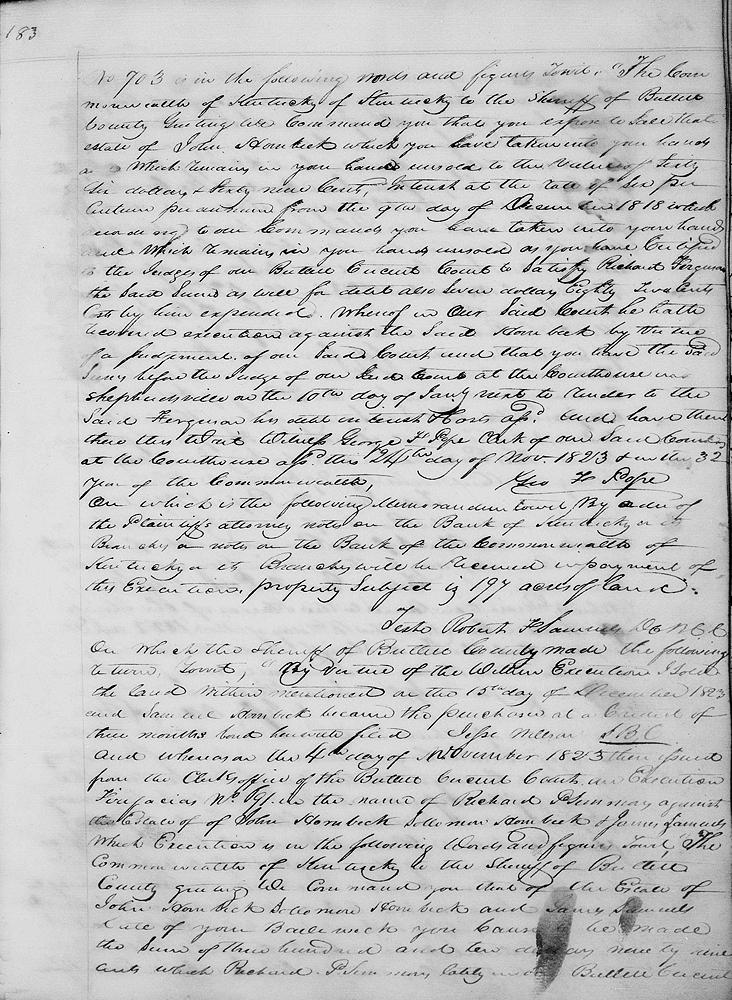 183
No 703 is in the following words and figures Towit, "The Com
monwealth of Kentucky of Kentucky to the Sheriff of Bullitt
County Greeting We Command you that you expose to Sale that
estate of John Hornbeck which you have taken into your hands
which remains in your hands unsold to the Value of Sixty
Six dollars & Sixty nine Cents Interest at the rate of Six per
Centum per annum from the 9th day of December 1818 which
according to our Commands you have taken into your hands
and Which remains in your hands unsold as you have Certified
to the Judges of our Bullitt Circuit Court to Satisfy Richard Ferguson
the Said Sums as well for debt also Seven dollars Eighty Two Cents
Costs by him expended. Whereof in Our Said Court he hath
recovered execution against the Said Hornbeck by Virtue
of a Judgement of our Said Court and that you have the Said
Sums before the Judge of our Said Court at the Courthouse in
Shepherdsville on the 10th day of Jany next to render to the
Said Ferguson his debt interest & Costs afsd. And have then
there this Writ Witness George F Pope Clerk of our Said Court
at the Courthouse afsd. this 24th day of Nov 1823 & in the 32
year of the Commonwealth, Geo F Pope
On which is the following Memorandum towit, By order of
the Plaintiffs attorney notes on the Bank of Kentucky or its
Branches or notes on the Bank of the Commonwealth of
Kentucky or its Branches will be received in payment of
this Execution, property Subject is 197 acres of land.
Teste Robert F Samuels
On which the Sheriff of Bullitt County made the following
return, Towit, "By Virtue of the Within Execution I Sold
the land Within mentioned on the 15th day of December 1823
and Samuel Hornbeck became the purchaser at a Credit of
three months bond herewith filed Jesse Wilson S.B.C
And whereas on the 4th day of November 1823 there issued
from the Clerks office of the Bullitt Circuit Court, an Execution
Fierifacias No. in the name of Richard P Simmons against
the Estate of of John Hornbeck Solomon Hornbeck & James Samuels
Which Execution is in the following Words and figures Towit, "The
Commonwealth of Kentucky to the Sheriff of Bullitt
County greeting We Command you that of the Estate of
John Hornbeck Solomon Hornbeck and James Samuels
late of your Bailiwick you Cause to be made
the Sum of three hundred and ten dollars ninety nine
cents which Richard P Simmons lately in our Bullitt Circuit